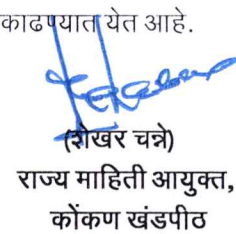 काढण्यात येत आहे.
(शेखर चन्ने)
राज्य माहिती आयुक्त,
कोंकण खंडपीठ